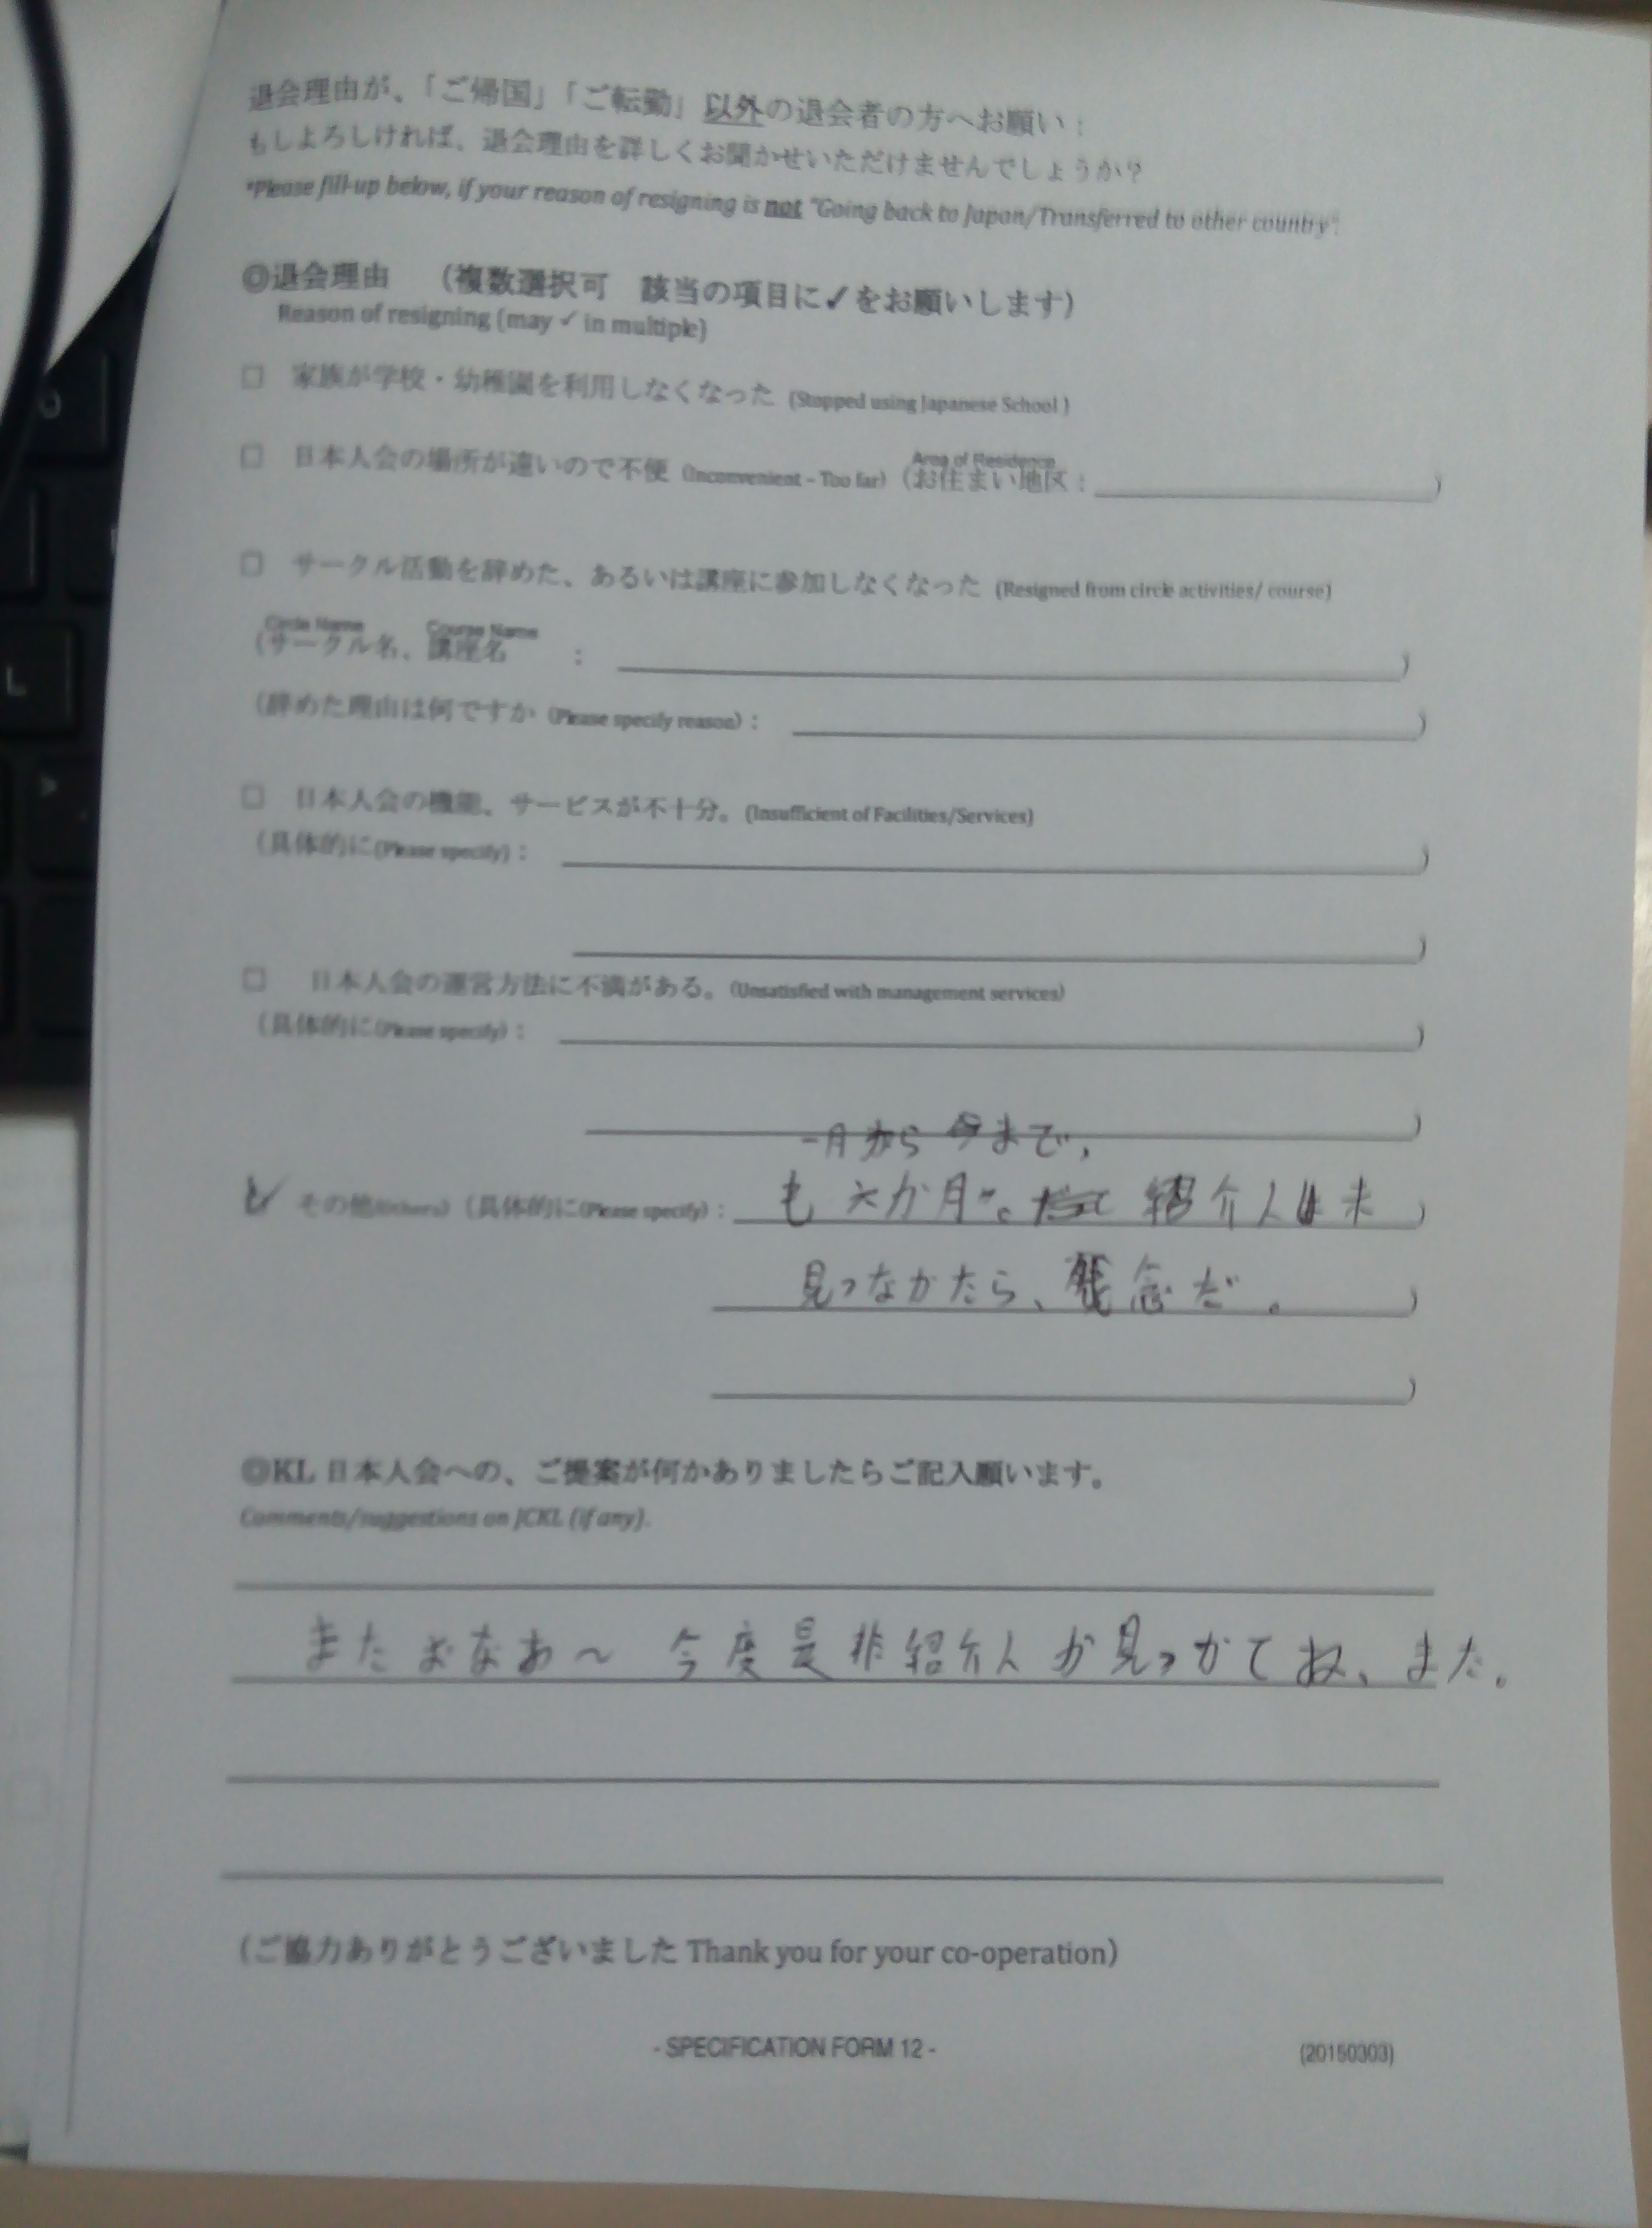 退会理由が、「ご帰国」「ご転勤」以外の退会者の方へお願い：
もしよろしければ、退会理由を詳しくお聞かせいただけませんでしょうか？
*Please fill-up below, if your reason of resigning is not "Going back to Japan/Transferred to other country".
◎退会理由　（複数選択可　該当の項目に✓をお願いします）
Reason of resigning (may ✓ in multiple)
□ 家族が学校・幼稚園を利用しなくなった (Stopped using Japanese School )
□ 日本人会の場所が遠いので不便 (Inconvenient – Too far)（お住まい地区： ）
Area of Residence
□ サークル活動を辞めた、あるいは講座に参加しなくなった (Resigned from circle activities/ course)
Circle Name Course Name
（サークル名、講座名 ： ）
（辞めた理由は何ですか (Please specify reason)： ）
□ 日本人会の機能、サービスが不十分。(Insufficient of Facilities/Services)
（具体的に(Please specify)： ）
）
□ 日本人会の運営方法に不満がある。(Unsatisfied with management services)
（具体的に(Please specify)： ）
）
一月から今まで,
✓ その他(Others)（具体的に(Please specify)： も六か月。紹介人は未 ）
見つなかたら、残念だ。 ）
）
◎KL 日本人会への、ご提案が何かありましたらご記入願います。
Comments/suggestions on JCKL (if any).
またおなあ〜 今度是非紹介人が見つかてね、また。
（ご協力ありがとうございました Thank you for your co-operation）
- SPECIFICATION FORM 12 -
(20150303)